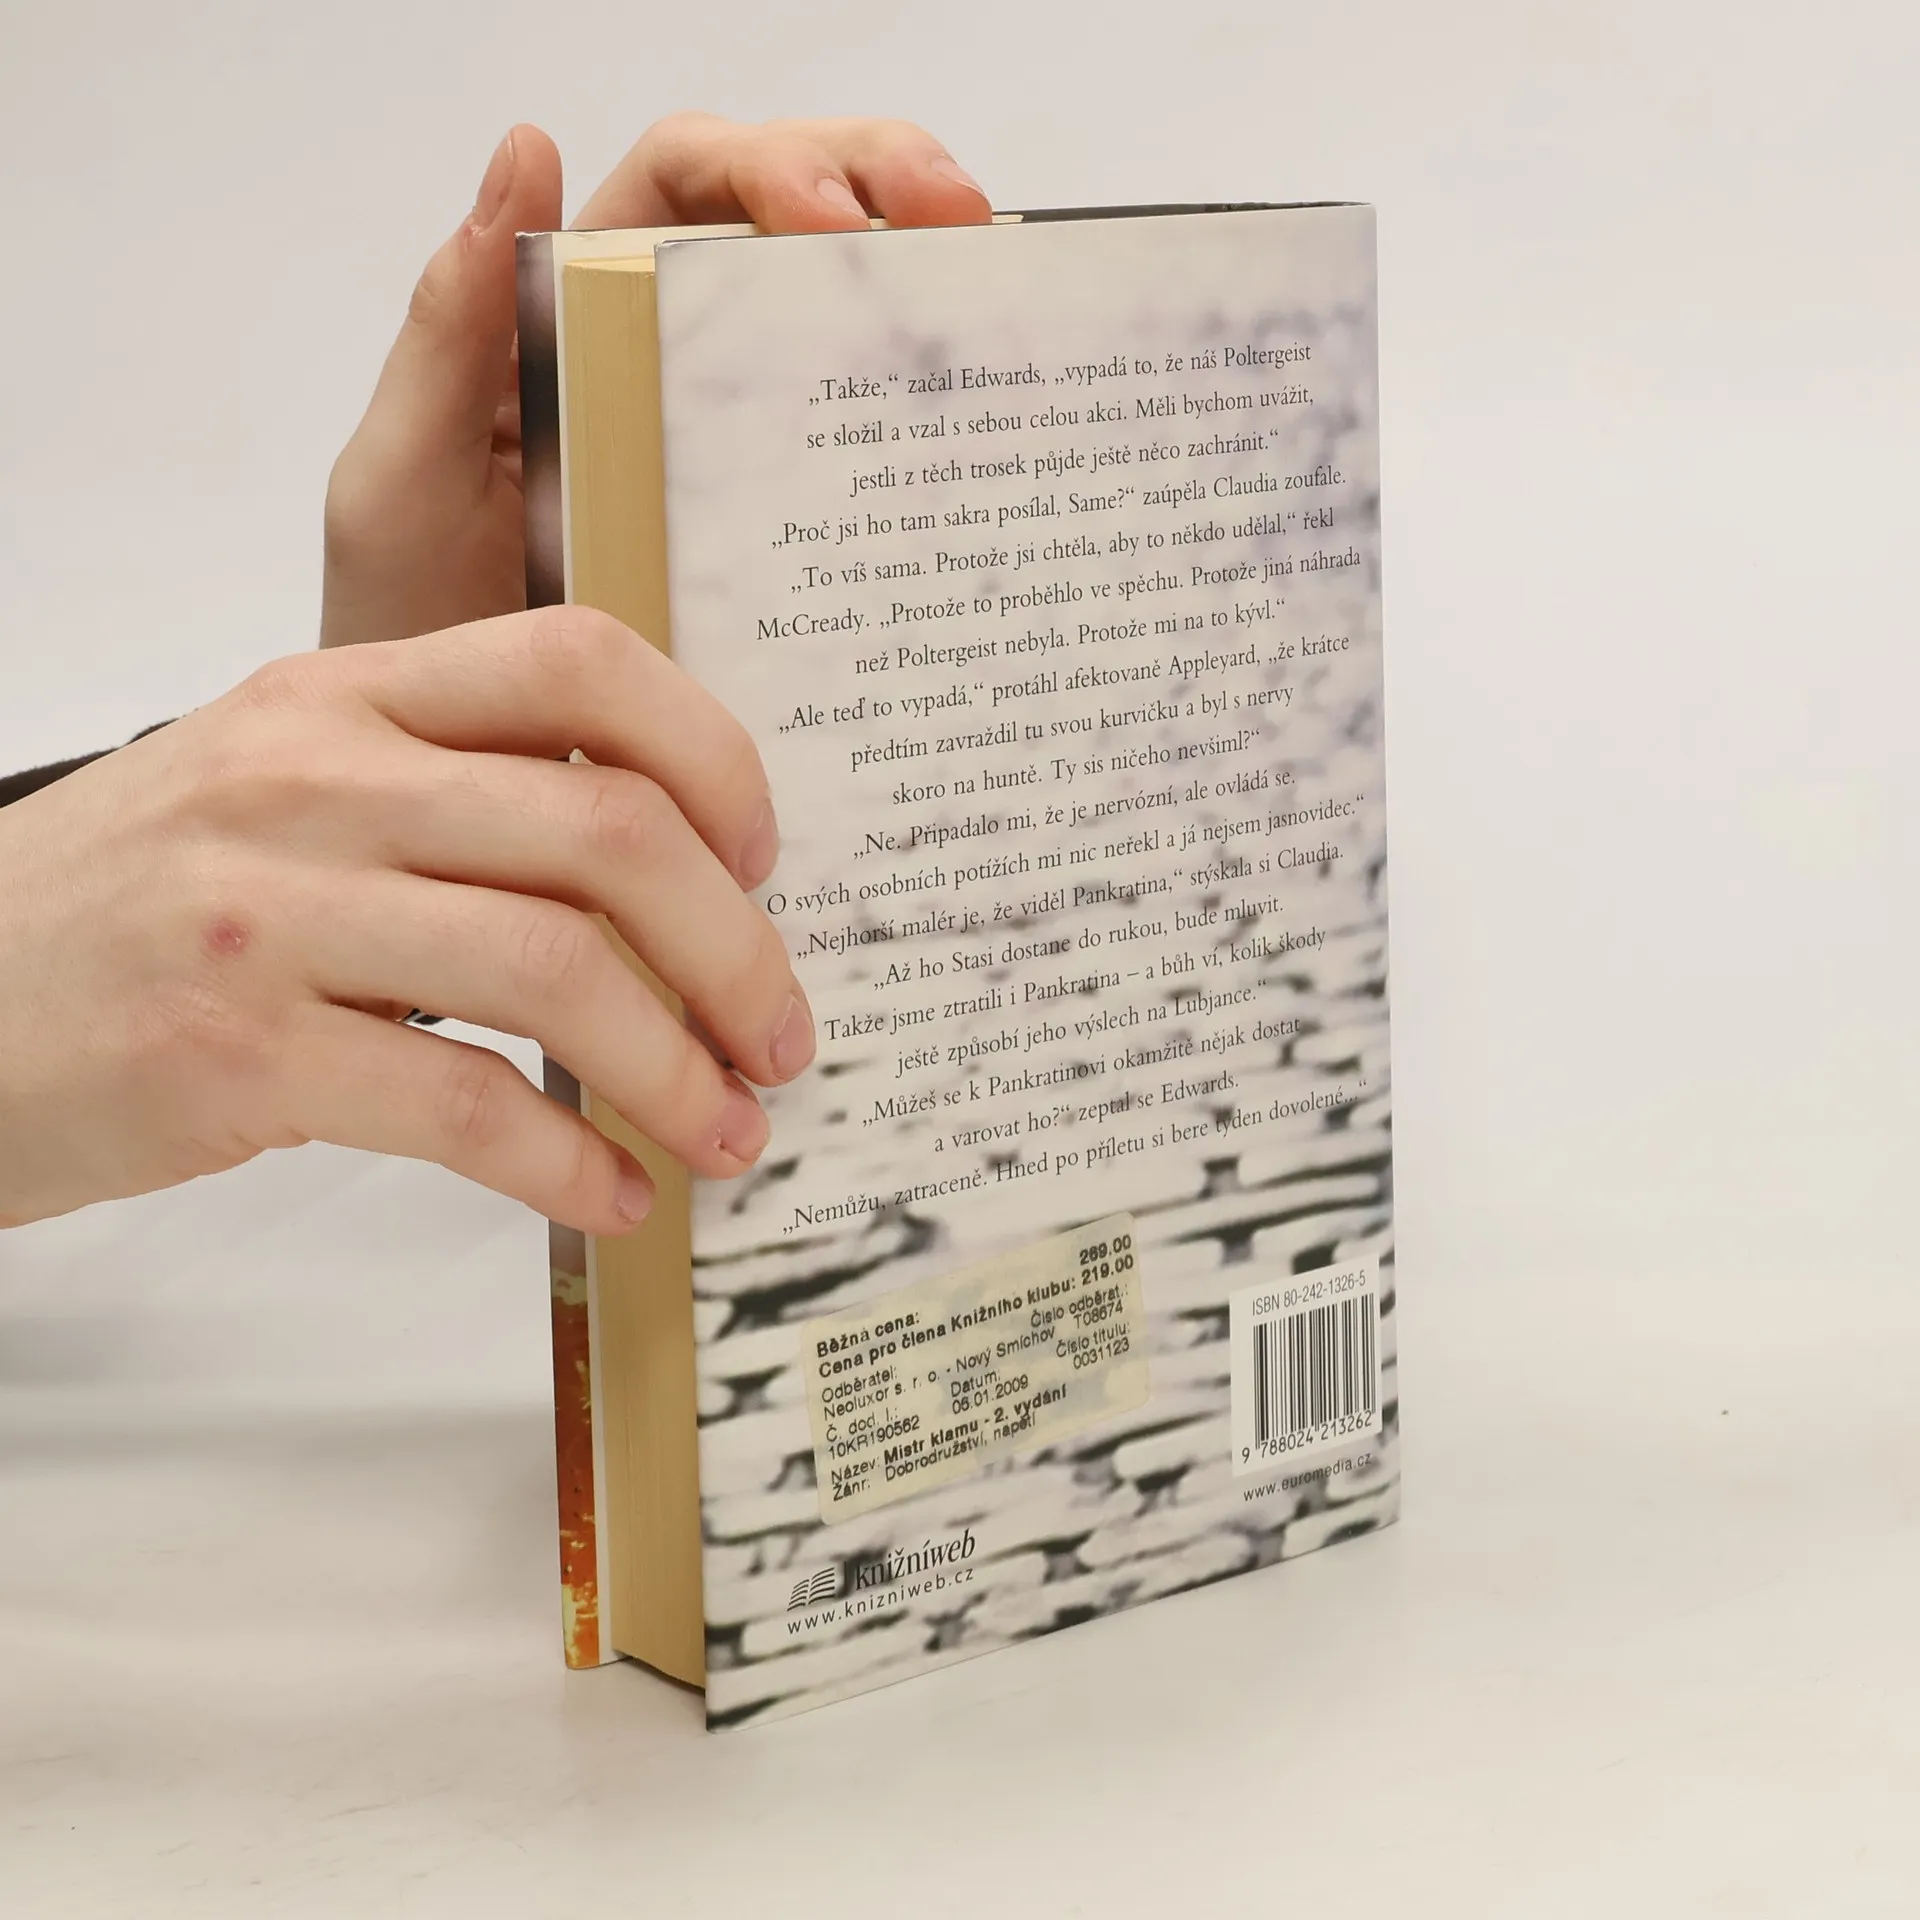 „Takže,“ začal Edwards, „vypadá to, že náš Poltergeist
se složil a vzal s sebou celou akci. Měli bychom uvážit,
jestli z těch trosek půjde ještě něco zachránit.“
„Proč jsi ho tam sakra posílal, Same?“ zaúpěla Claudia zoufale.
„To víš sama. Protože jsi chtěla, aby to někdo udělal,“ řekl
McCready. „Protože to proběhlo ve spěchu. Protože jiná náhrada
než Poltergeist nebyla. Protože mi na to kývl.“
„Ale teď to vypadá,“ protáhl afektovaně Appleyard, „že krátce
předtím zavraždil tu svou kurvičku a byl s nervy
skoro na huntě. Ty sis ničeho nevšiml?“
„Ne. Připadalo mi, že je nervózní, ale ovládá se.
O svých osobních potížích mi nic neřekl a já nejsem jasnovidec.“
„Nejhorší malér je, že viděl Pankratina,“ stýskala si Claudia.
„Až ho Stasi dostane do rukou, bude mluvit.
Takže jsme ztratili i Pankratina – a bůh ví, kolik škody
ještě způsobí jeho výslech na Lubjance.“
„Můžeš se k Pankratinovi okamžitě nějak dostat
a varovat ho?“ zeptal se Edwards.
„Nemůžu, zatraceně. Hned po příletu si bere týden dovolené...“
Běžná cena: 269.00
Cena pro člena Knižního klubu: 219.00
Odběratel: Číslo odběrat.:
Neoluxor s. r. o. - Nový Smíchov T08674
Č. dod. l.: Datum: Číslo titulu:
10KR190562 06.01.2009 0031123
Název: Mistr klamu - 2. vydání
Žánr: Dobrodružství, napětí
ISBN 80-242-1326-5
9 788024 213262
www.euromedia.cz
knižníweb
www.knizniweb.cz